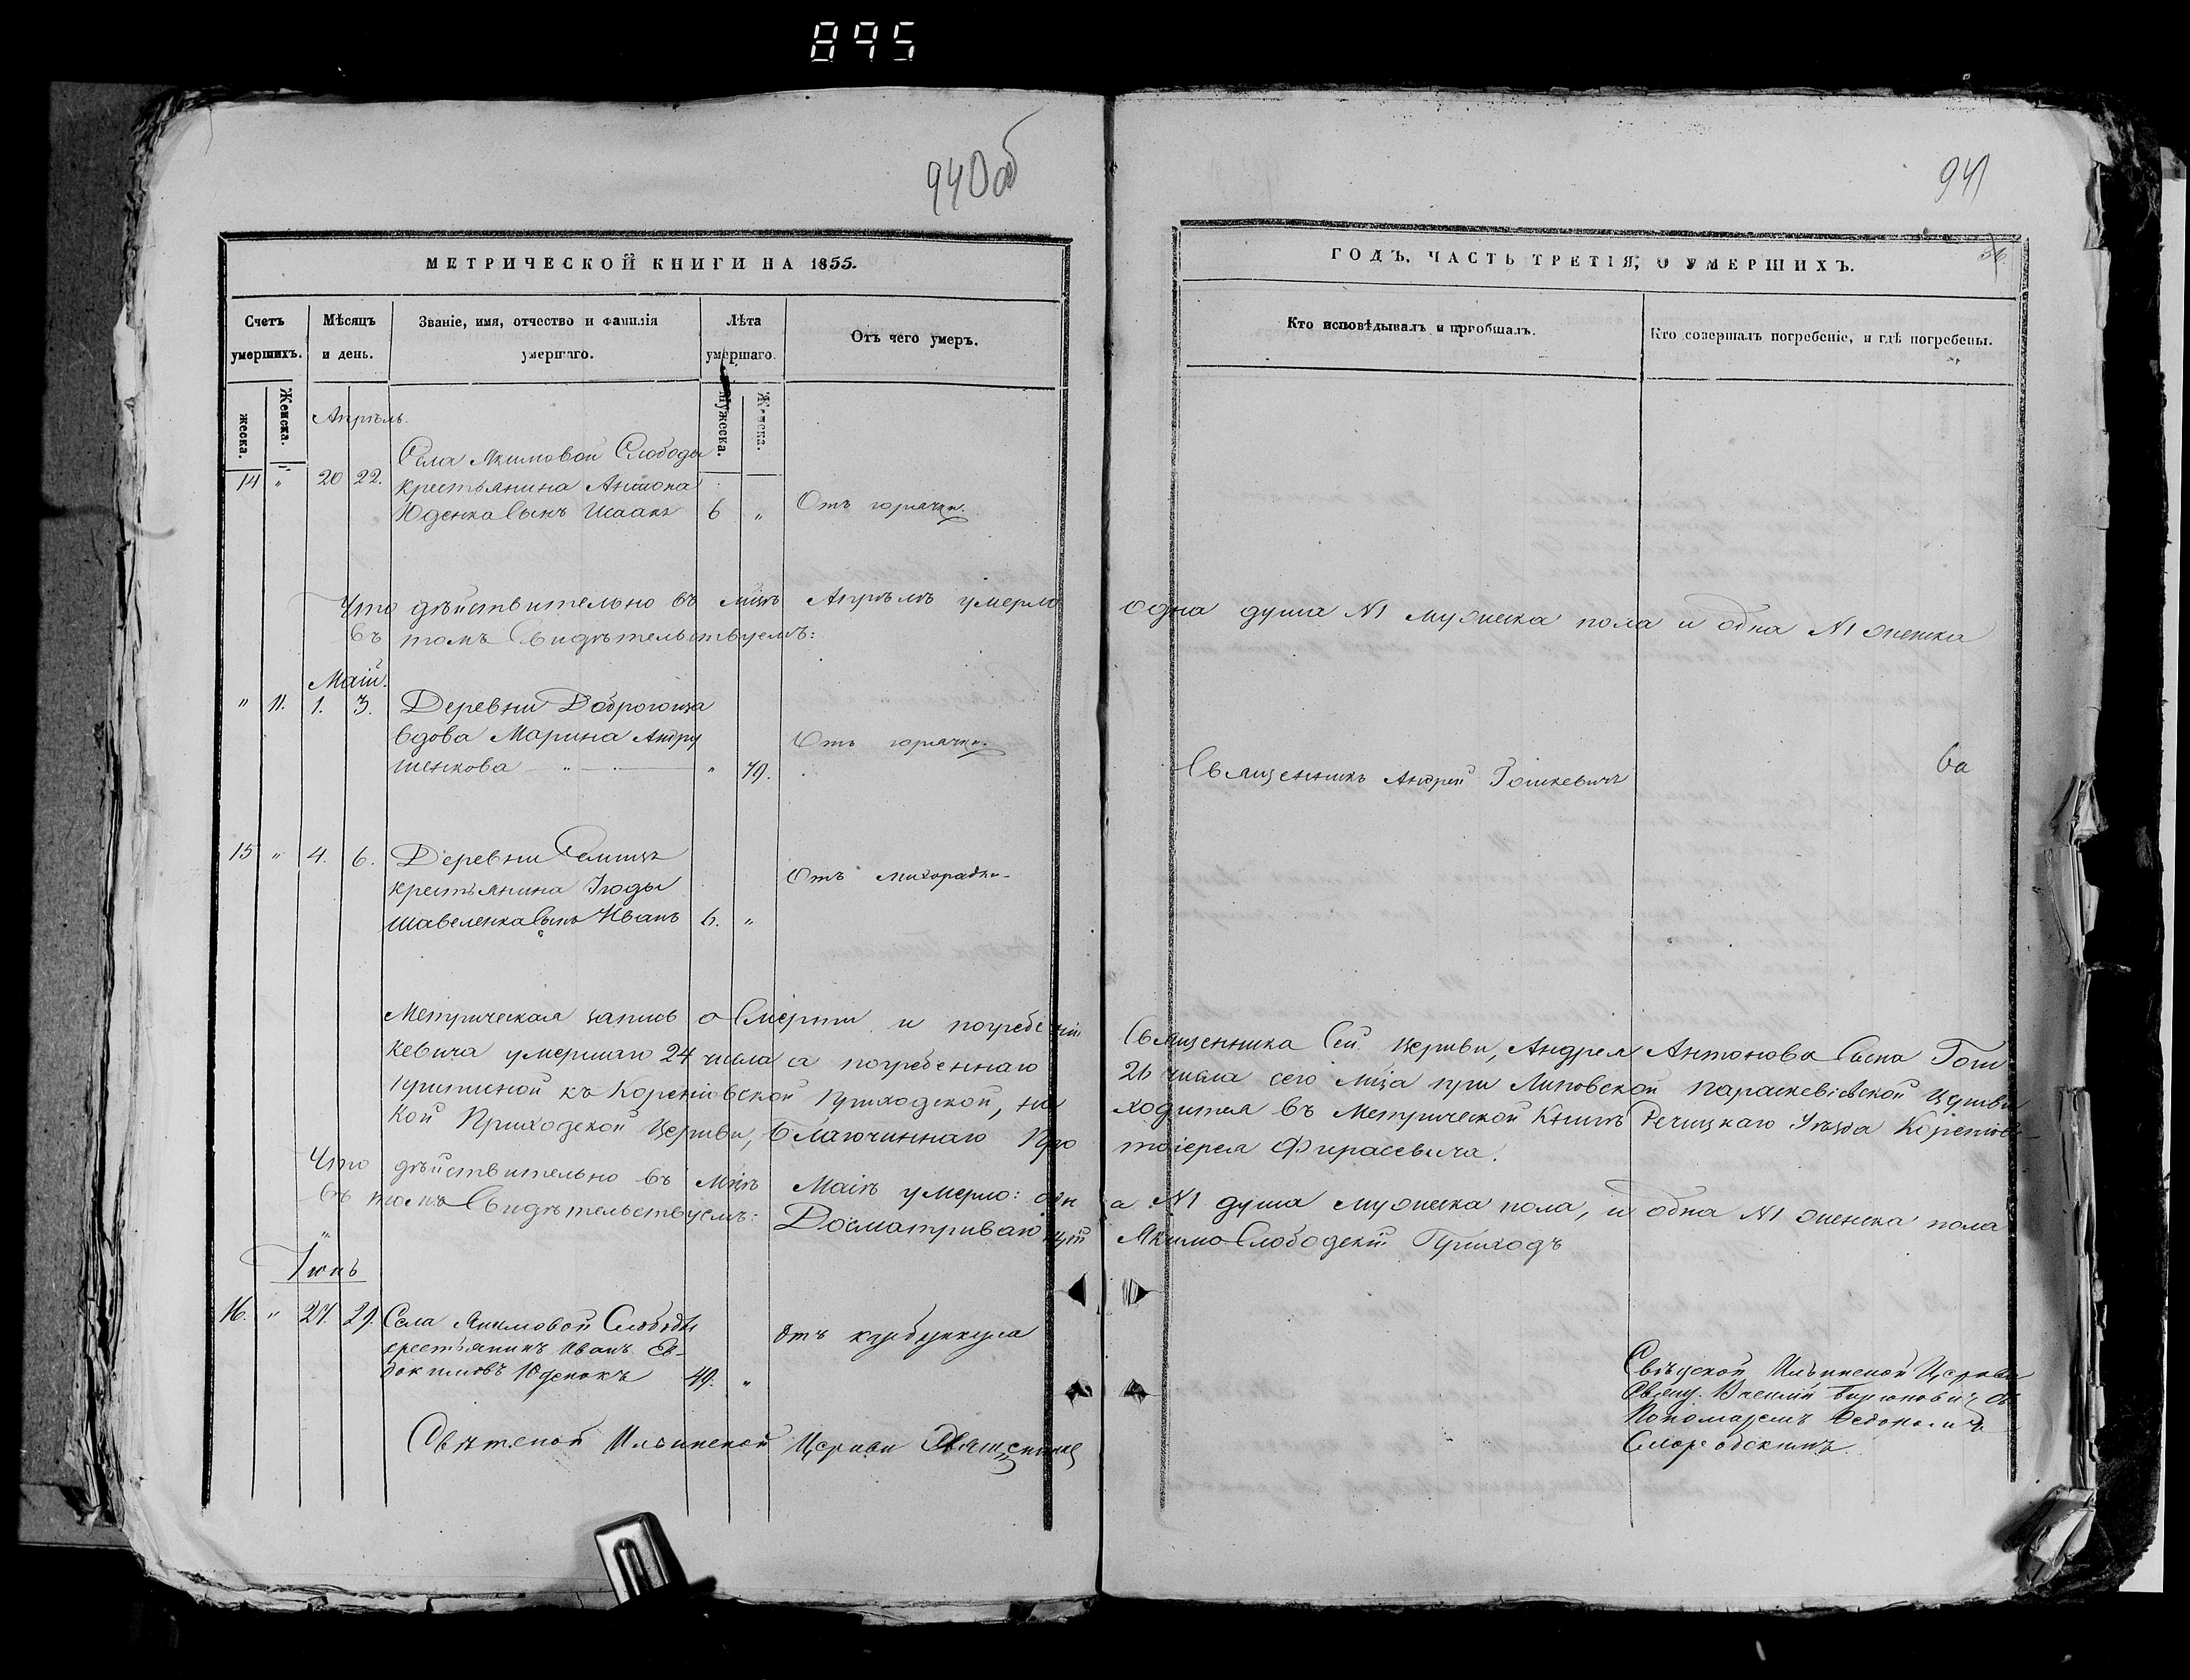 895
940об
МЕТРИЧЕСКОЙ КНИГИ НА 1855.
Счетъ умершихъ.
Мѣсяцъ и день.
Званіе, имя, отчество и фамилія умершаго.
Лѣта умершаго.
Отъ чего умеръ.
жеска.
Женска.
Мужеска.
Женска.
Апрѣль.
14 " 20 22. Села Якимовой Слободы
крестьянина Антона
Юденка сынъ Исаакъ 6 " Отъ горячки.
Что дѣйствительно въ мцѣ Апрѣлѣ умерло
въ томъ свидѣтельствуемъ:
Маій.
" 11. 1. 3. Деревни Доброгоща
вдова Марина Андру
шенкова " " 79. Отъ горячки.
15 " 4. 6. Деревни
крестьянина Іюды
Шавеленка сынъ Иванъ 6. " Отъ лихорадки
Метрическая запись о смерти и погребеніи
кевича умершаго 24 числа а погребеннаго
къ Приходской, на
кой Приходской Церкви, благочиннаго Про
Что дѣйствительно въ мцѣ Маіѣ умерло: одн
въ томъ свидѣтельствуемъ: Досматривающій
Іюнь
16. " 27 29. Села Якимовой Слободы
крестьянинъ Иванъ Ев-
докимовъ Юденокъ 49. " Отъ карбункула
Ильинской Церкви Священникъ
941
ГОДЪ, ЧАСТЬ ТРЕТІЯ, О УМЕРШИХЪ.
Кто исповѣдывалъ и пріобщалъ.
Кто совершалъ погребеніе, и гдѣ погребены.
одна душа №1 мужеска пола и одна №1 женска
Священникъ Андрей Гошкевичъ
Священника сей церкви, Андрея Антонова сына Гош
26 числа сего мца при Липовской Параскевіевской Церкви
ходится въ Метрической Книгѣ Речицкаго Уѣзда
тоіерея Фирасевича.
а №1 душа мужеска пола, и одна №1 женска пола
Якимо Слободскій Приходъ
Ильинской Церкви
Свящ. Василій съ
Пономаремъ